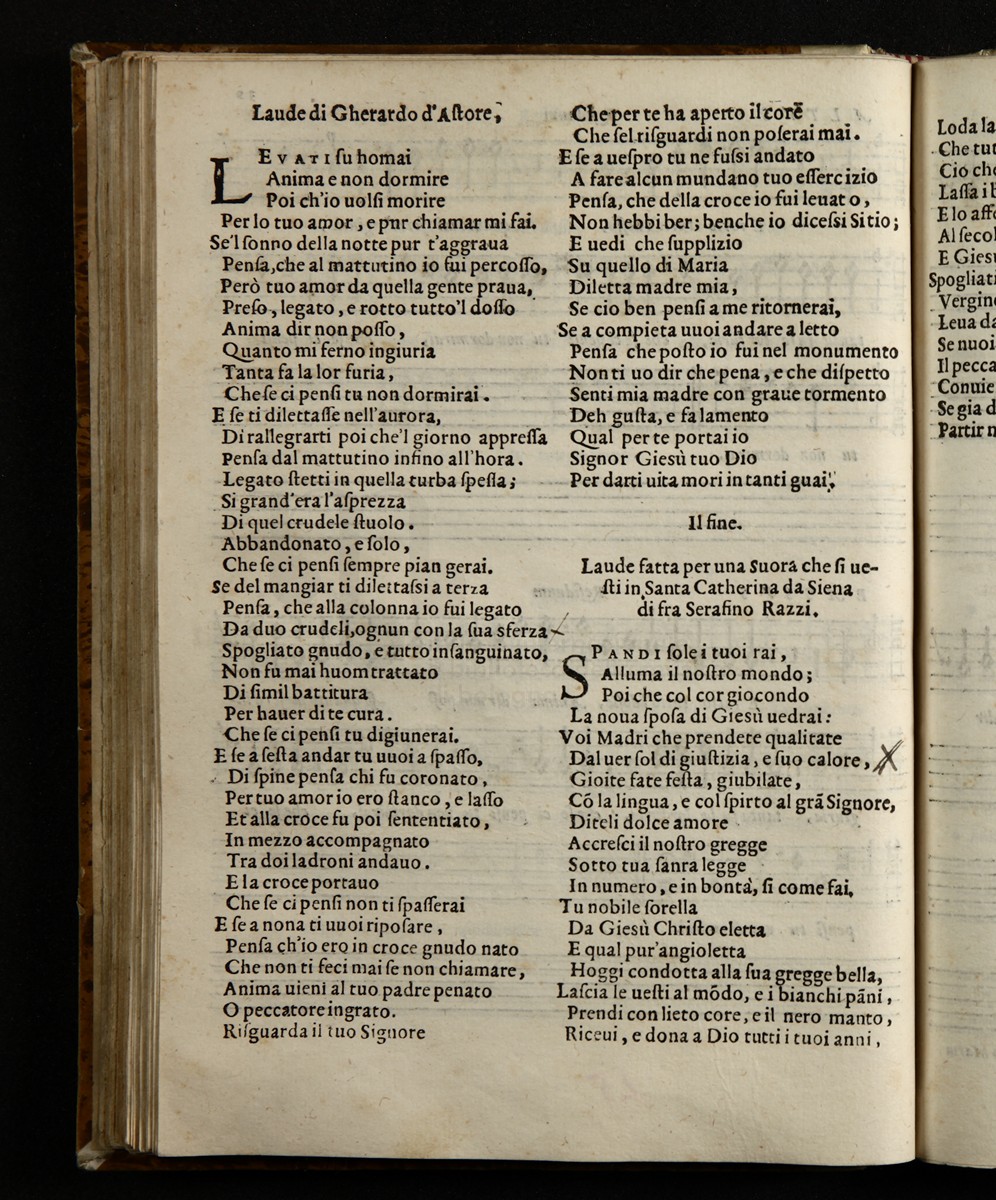 Laude di Gherardo d'Aſtore,
LEVATI ſu homai
Anima e non dormire
Poi ch'io uolſi morire
Per lo tuo amor, e pur chiamar mi fai.
Se'l ſonno della notte pur t'aggraua
Penſa, che al mattutino io fui percoſſo,
Però tuo amor da quella gente praua,
Preſo, legato, e rotto tutto'l doſſo
Anima dir non poſſo,
Quanto mi ferno ingiuria
Tanta fa la lor furia,
Che ſe ci penſi tu non dormirai.
E ſe ti dilettaſſe nell'aurora,
Di rallegrarti poi che'l giorno appreſſa
Penſa dal mattutino inſino all'hora.
Legato ſtetti in quella turba ſpeſſa;
Si grand'era l'aſprezza
Di quel crudele ſtuolo.
Abbandonato, e ſolo,
Che ſe ci penſi ſempre pian gerai.
Se del mangiar ti dilettaſsi a terza
Penſa, che alla colonna io fui legato
Da duo crudeli, ognun con la ſua sferza
Spogliato gnudo, e tutto inſanguinato,
Non fu mai huom trattato
Di ſimil battitura
Per hauer di te cura.
Che ſe ci penſi tu digiunerai.
E ſe a ſeſta andar tu uuoi a ſpaſſo,
Di ſpine penſa chi fu coronato,
Per tuo amor io ero ſtanco, e laſſo
Et alla croce fu poi ſententiato,
In mezzo accompagnato
Tra doi ladroni andauo.
E la croce portauo
Che ſe ci penſi non ti ſpaſſerai
E ſe a nona ti uuoi ripoſare,
Penſa ch'io ero in croce gnudo nato
Che non ti feci mai ſe non chiamare,
Anima uieni al tuo padre penato
O peccatore ingrato.
Riſguarda il tuo Signore
Che per te ha aperto il core
Che ſel riſguardi non poſerai mai.
E ſe a ueſpro tu ne fuſsi andato
A fare alcun mundano tuo eſſercizio
Penſa, che della croce io fui leuato,
Non hebbi ber; benche io diceſsi Sitio;
E uedi che ſupplizio
Su quello di Maria
Diletta madre mia,
Se cio ben penſi a me ritornerai,
Se a compieta uuoi andare a letto
Penſa che poſto io fui nel monumento
Non ti uo dir che pena, e che diſpetto
Senti mia madre con graue tormento
Deh guſta, e fa lamento
Qual per te portai io
Signor Gieſù tuo Dio
Per darti uita mori in tanti guai,
Il fine.
Laude fatta per una Suora che ſi ue-
ſti in Santa Catherina da Siena
di fra Serafino Razzi.
SPANDI ſole i tuoi rai,
Alluma il noſtro mondo;
Poi che col cor giocondo
La noua ſpoſa di Gieſù uedrai:
Voi Madri che prendete qualitate
Dal uer ſol di giuſtizia, e ſuo calore,
Gioite fate feſta, giubilate,
Cō la lingua, e col ſpirto al grā Signore,
Diteli dolce amore
Accreſci il noſtro gregge
Sotto tua ſanta legge
In numero, e in bontà, ſi come fai,
Tu nobile ſorella
Da Gieſù Chriſto eletta
E qual pur'angioletta
Hoggi condotta alla ſua gregge bella,
Laſcia le ueſti al mōdo, e i bianchi pāni,
Prendi con lieto core, e il nero manto,
Riceui, e dona a Dio tutti i tuoi anni,
Loda la
Che tut
Cio che
Laſſa i l
E lo affe
Al ſecol
E Gieſu
Spogliati
Vergine
Leua da
Se nuoi
Il pecca
Conuie
Se gia d
Partir n